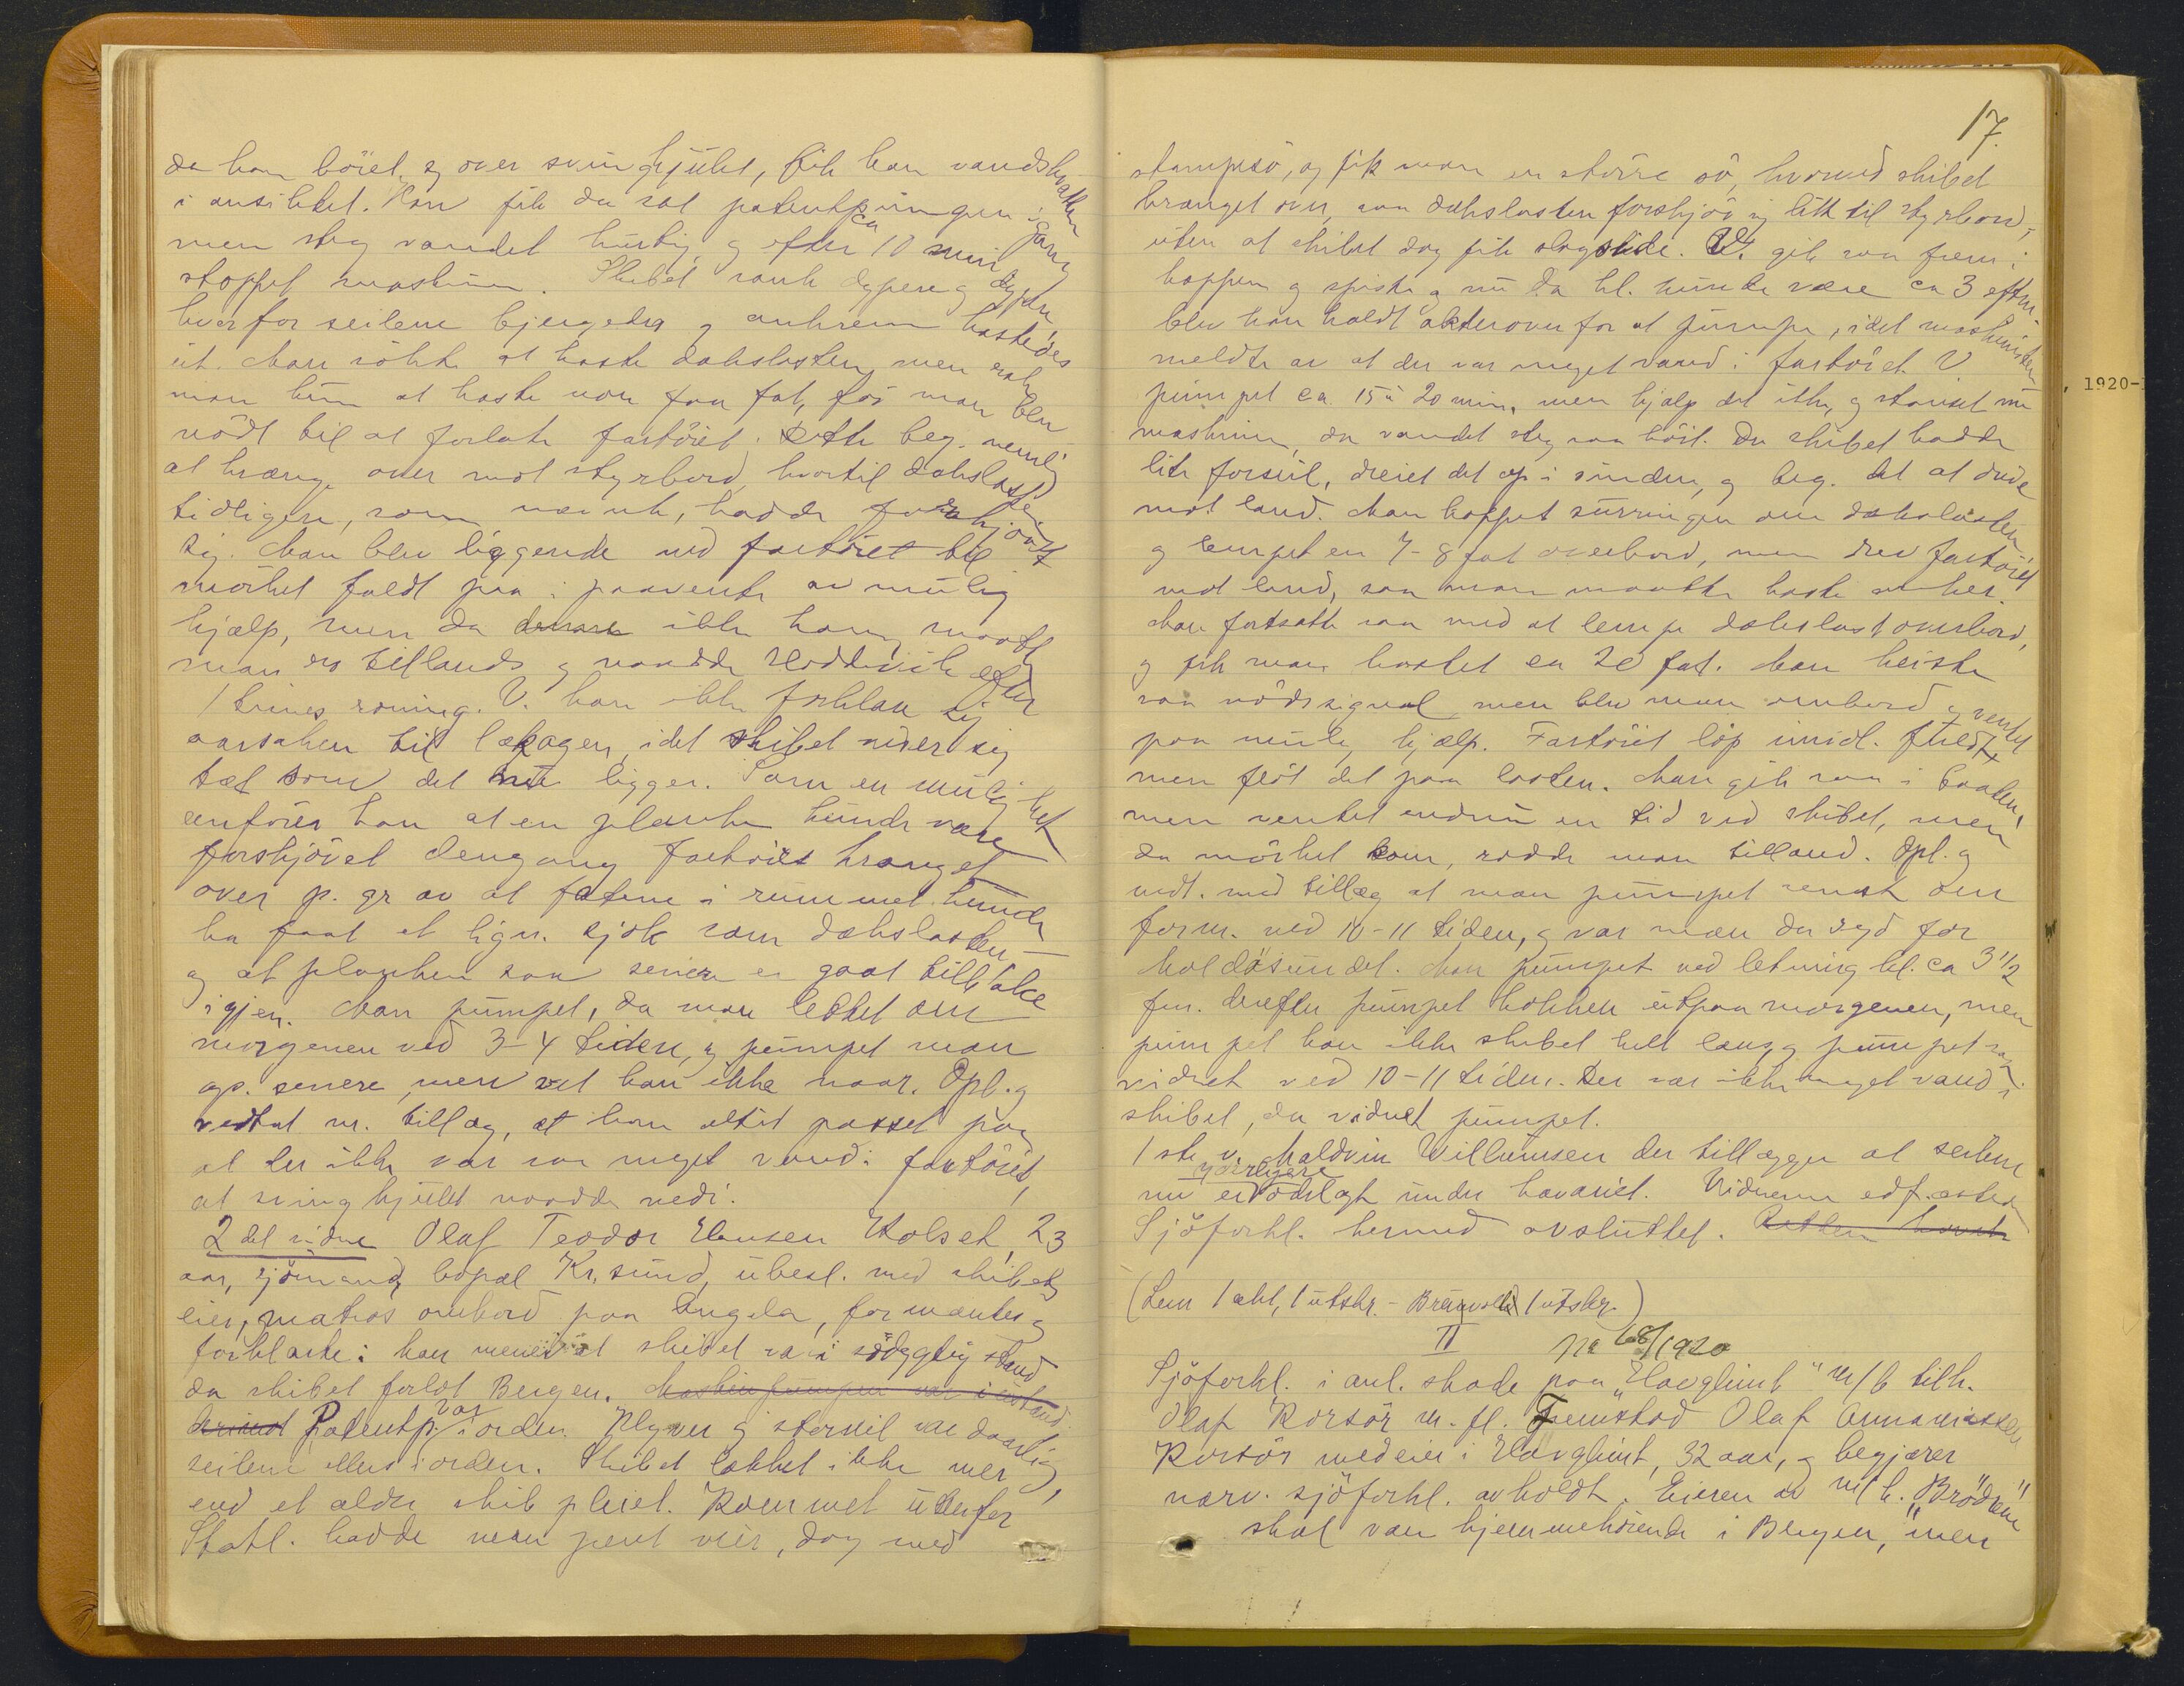 da han böiet sig over svinghjulet, fik han vandskvætten
i ansiktet. Han fik da sat patentpumpen i gang
men steg vandet hurtig, og efter ca 10 min
stoppet maskinen. Skibet sank dypere og dypere
hvorfor seilene bjergedes og ankeren kastedes
ut. Man søkte at kaste dækslasten, men rak
man kun at kaste noen faa fat, før man blev
nödt til at forlate fartöiet. Dette beg. nemlig
at krænge over mot styrbord, hvortil dækslasten
tidligere, som nævnt, hadde forskjövet
sig. Man blev liggende ved fartöiet til
mörket faldt paa i paavente av mulig
hjælp, men da denne ikke kom, maatte
man ro tillands og naadde Hoddevik efter
1 times roning. V. kan ikke forklare sig
aarsaken til lækagen, idet skibet viser sig
tæt som det nu ligger. Som en mulighet
anförer han at en planke kunde være
forskjövet dengang fartöiet krænget
over p. gr av at fatene i rummet kunde
ha faat et lign. sjok som dækslasten
og at planken saa senere er gaat tilbake
igjen. Man pumpet, da man lettet om
morgenen ved 3-4 tiden, og pumpet man
ogs. senere, men vet han ikke naar. Opl. og
vedtat m. tillæg, at han altid passet paa
at der ikke var saa meget vand i fartöiet,
at svinghjulet naadde nedi.
2det vidne Olaf Teodor Hansen Holset, 23
aar, sjömand, bopæl Kr.sund, ubesl. med skibets
eier, matros ombord paa Angela, formantes og
forklarte: han mener at skibet var i sjödygtig stand
da skibet forlot Bergen. Maskinpumpen var i
Patentp. var i orden. Klyver og storseil var daarlig,
seilene ellers i orden. Skibet lækket ikke mer
end et ældre skib pleiet. Kommet utenfor
Statl. hadde man pent veir, dog med
17.
stampsö, og fik man en större sö, hvorved skibet
krænget over, saa dækslasten forskjöv sig litt til styrbord,
uten at skibet dog fik slagside. V. gik saa frem i
kappen og spiste og nu da kl. kunde være ca 3 efterm.
blev han kaldt akterover for at pumpe, idet maskinisten
meldte av at der var meget vand i fartöiet. V
pumpet ca. 15 à 20 min, men hjalp det ikke, og stanset nu
maskinen, da vandet steg saa höit. Da skibet hadde
lite forseil, dreiet det op i vinden, og beg. det at drive
mot land. Man kappet surringen om dækslasten
og lempet en 7-8 fat overbord, men drev fartöiet
mot land, saa man maatte kaste anker.
Man fortsatte saa med at lempe dækslast overbord,
og fik man kastet ca 20 fat. Man heiste
saa nödsignal men blev man ombord og ventet
paa mulig hjælp. Fartöiet löp imidl. fuldt
men flöt det paa lasten. Man gik saa i baaten,
men ventet endnu en tid ved skibet, men
da mörket kom, rodde man tilland. Opl. og
vedt. med tillæg at man pumpet senest om
form. ved 10-11 tiden, og var man da syd for
Holdösundet. Man pumpet ved letning kl. ca 3 1/2
fm. derefter pumpet kokken utpaa morgenen, men
pumpet han ikke skibet helt læns, og pumpet saa
vidnet ved 10-11 tiden. Der var ikke meget vand i
skibet, da vidnet pumpet.
1ste v. Maldvin Willumsen der tillægger at seilene
nu er yderligere ödelagt under havariet. Vidnerne edf.
Sjöforkl. hermed avsluttet. Retten hævet
(Lem 1 akt, 1 utskr. - Bræsvold 1 utskr.)
II No 68/1920
Sjöforkl. i anl. skade paa "Havglimt" m/b tilh.
Olaf Korsör m. fl. Fremstod Olaf Annaniassen
Korsör medeier i Havglimt, 32 aar, og begjærer
nærv. sjöforkl. avholdt. Eieren av m/k. "Brödrene"
skal være hjemmehörende i Bergen, men
, 1920-1